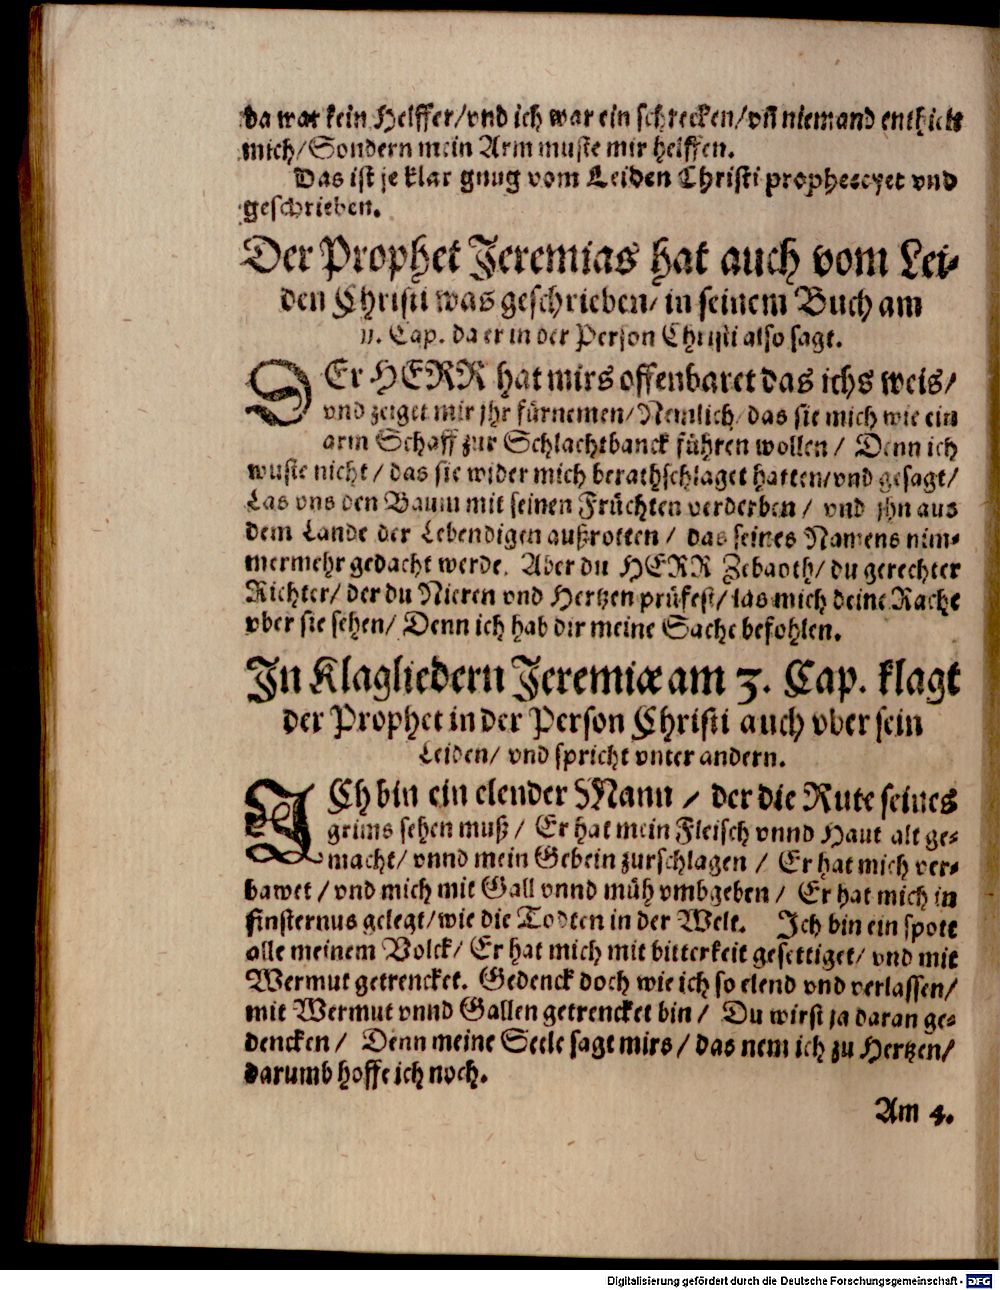 da war kein Helffer/vnd ich war ein schrecken/vñ niemand enthielt
mich/Sondern mein Arm muste mir helffen.
Das ist je klar gnug vom Leiden Christi propheceyet vnd
geschrieben.
Der Prophet Jeremias hat auch vom Lei-
den Christi was geschrieben/ in seinem Buch am
11. Cap. da er in der Person Christi also sagt.
DEr HERR hat mirs offenbaret das ichs weis/
vnd zeiget mir jhr fürnemen/Nemlich/das sie mich wie ein
arm Schaff zur Schlachtbanck führen wollen/ Denn ich
wuste nicht/ das sie wider mich berathschlaget hatten/vnd gesagt/
Las vns den Baum mit seinen Früchten verderben/ vnd jhn aus
dem Lande der Lebendigen außrotten/ das seines Namens nim-
mermehr gedacht werde. Aber du HERR Zebaoth/ du gerechter
Richter/ der du Nieren vnd Hertzen prüfest/las mich deine Rache
vber sie sehen/ Denn ich hab dir meine Sache befohlen.
In Klagliedern Jeremiæ am 3. Cap. klagt
der Prophet in der Person Christi auch vber sein
Leiden/ vnd spricht vnter andern.
ICh bin ein elender Mann/ der die Rute seines
grims sehen muß/ Er hat mein Fleisch vnnd Haut alt ge-
macht/ vnnd mein Gebein zurschlagen/ Er hat mich ver-
bawet/ vnd mich mit Gall vnnd müh vmbgeben/ Er hat mich in
finsternus gelegt/wie die Todten in der Welt. Ich bin ein spott
alle meinem Volck/ Er hat mich mit bitterkeit gesettiget/ vnd mit
Wermut getrencket. Gedenck doch wie ich so elend vnd verlassen/
mit Wermut vnnd Gallen getrencket bin/ Du wirst ja daran ge-
dencken/ Denn meine Seele sagt mirs/ das nem ich zu Hertzen/
darumb hoffe ich noch.
Am 4.
Digitalisierung gefördert durch die Deutsche Forschungsgemeinschaft - DFG